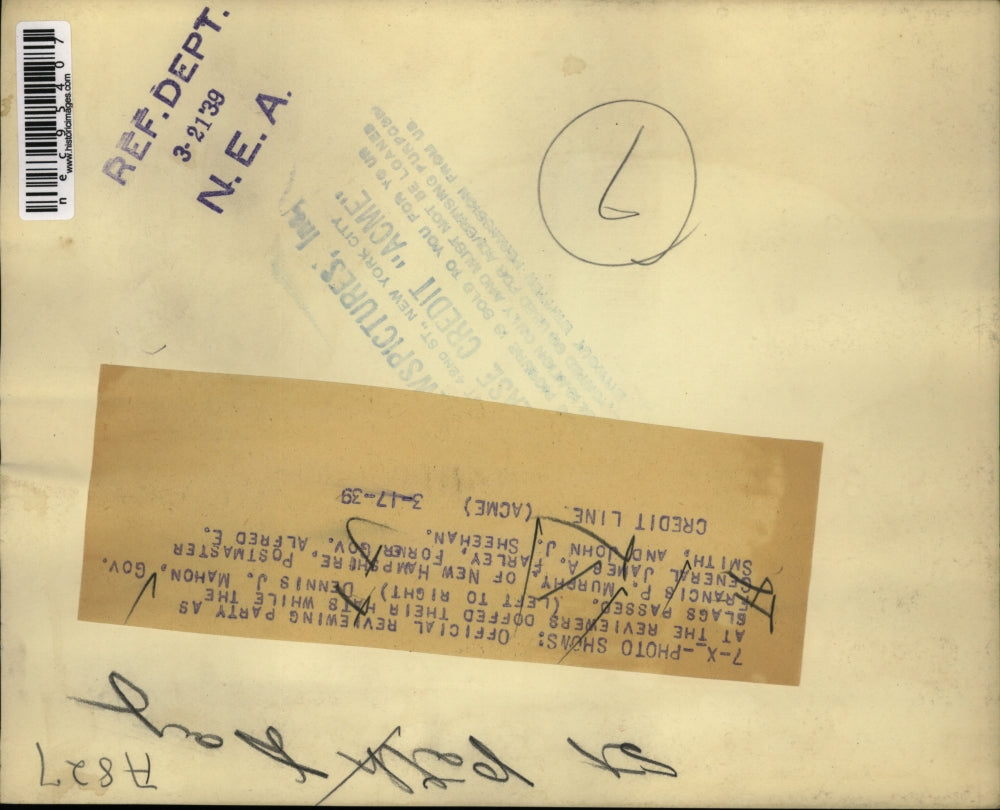 necj95407
www.historicimages.com
REF. DEPT.
3-21'39
N. E. A.
WSPICTURES, Inc.
42ND ST., NEW YORK CITY
CREDIT "ACME"
SOLD TO YOU FOR
ONLY AND MUST NOT BE LOANED
USED FOR ADVERTISING PURPOSE
PERMISSION FROM US
7-X--PHOTO SHOWS: OFFICIAL REVIEWING PARTY AS
AT THE REVIEWERS DOFFED THEIR HATS WHILE THE
FLAGS PASSED. (LEFT TO RIGHT) DENNIS J. MAHON, GOV.
FRANCIS P. MURPHY OF NEW HAMPSHIRE, POSTMASTER
GENERAL JAMES A. FARLEY, FORMER GOV. ALFRED E.
SMITH, AND JOHN J. SHEEHAN.
CREDIT LINE (ACME) 3-17-39
St Day
A827